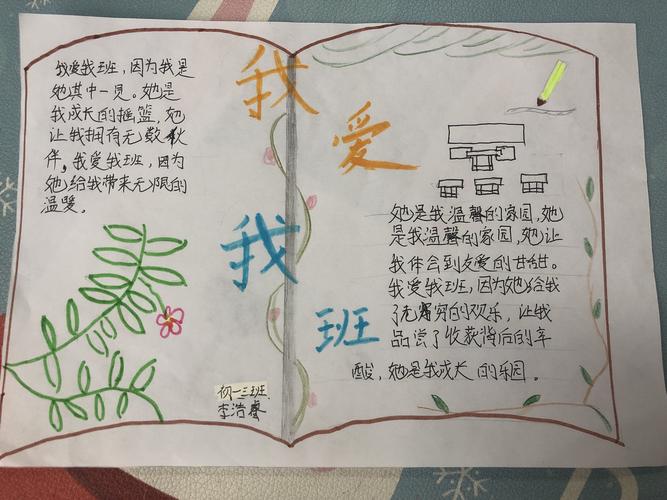 我爱我班，因为我是
她其中一员。她是
我成长的摇篮，她
让我拥有无数伙
伴，我爱我班，因为
她给我带来无限的
温暖。
我
爱
我
班
她是我温馨的家园，她
是我温馨的家园，她让
我体会到友爱的甘甜。
我爱我班，因为她给我
了无穷的欢乐，让我
品尝了收获背后的辛
酸，她是我成长的乐园。
初一三班
李浩睿